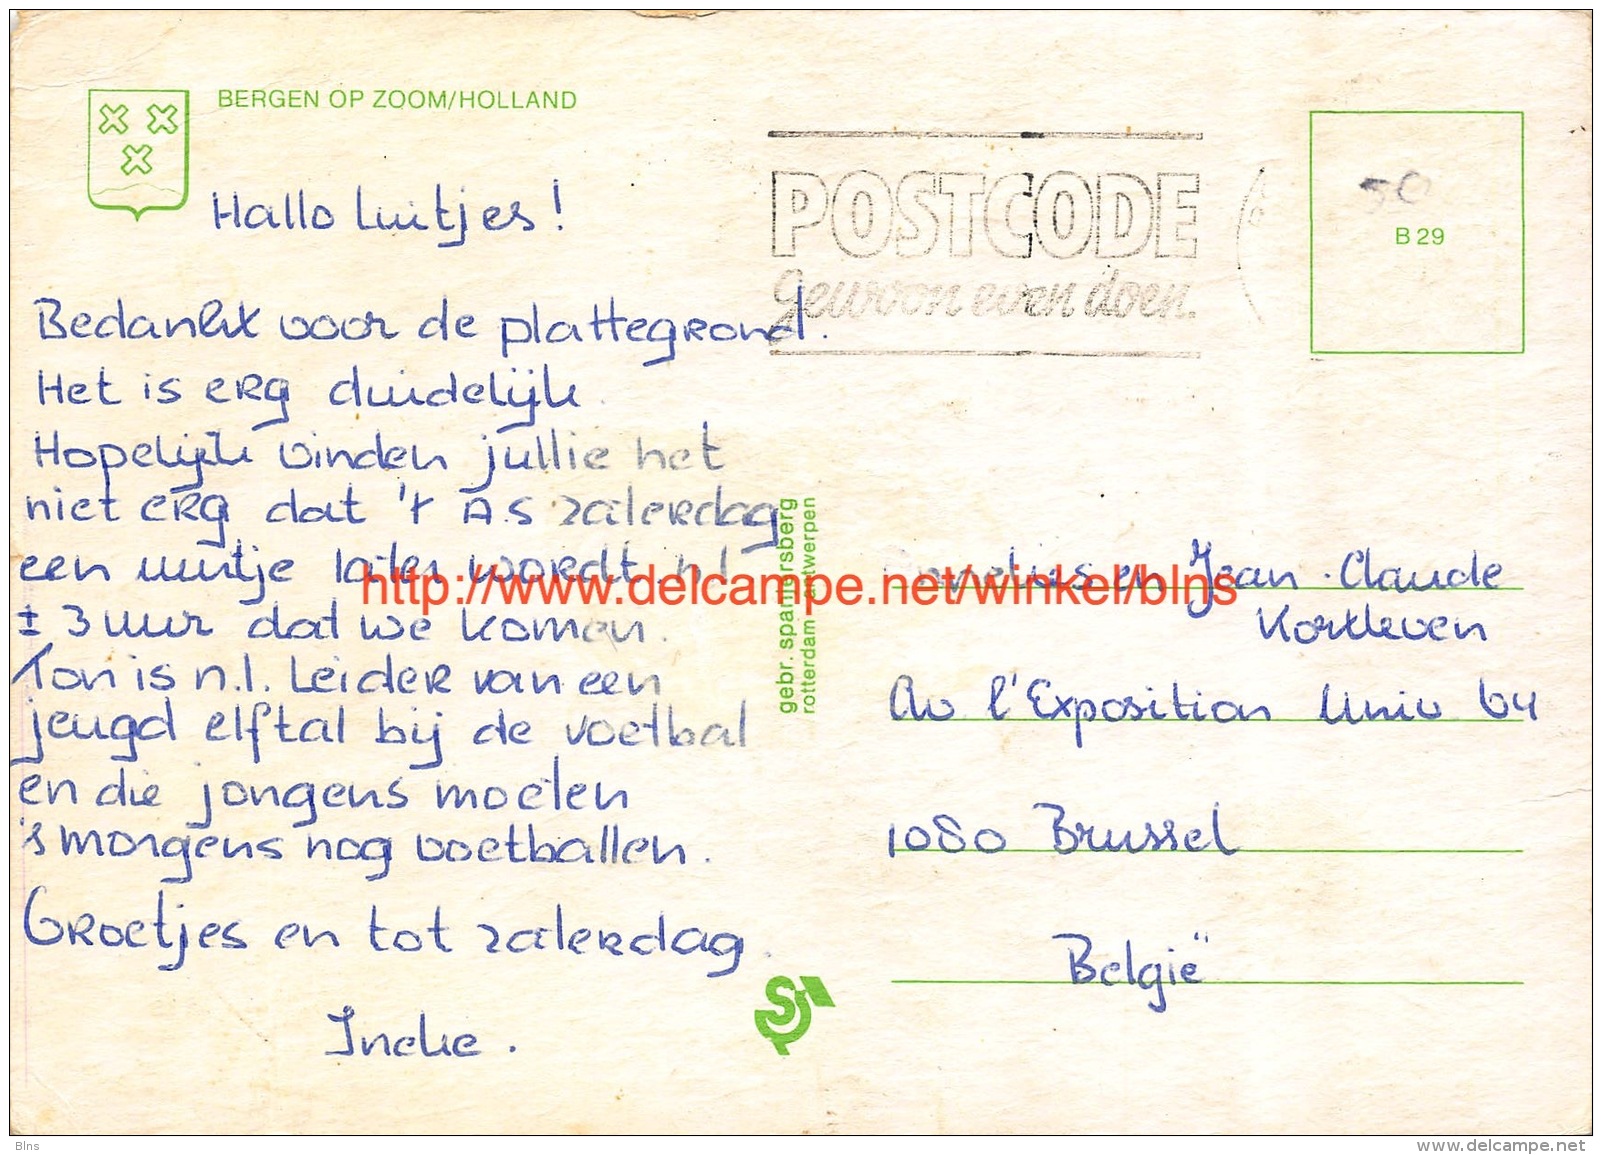 BERGEN OP ZOOM/HOLLAND
Hallo Luitjes!
Bedankt voor de plattegrond.
Het is erg duidelijk.
Hopelijk vinden jullie het
niet erg dat 't A.S zaterdag
een uurtje later wordt. n.l
± 3 uur dat we komen.
Ton is n.l. Leider van een
jeugd elftal bij de voetbal
en die jongens moeten
's morgens nog voetballen.
Groetjes en tot zaterdag.
Ineke.
gebr. spanjersberg
rotterdam - antwerpen
POSTCODE
gewoon even doen.
50
B 29
en Jean-Claude
Kortleven
Av l'Exposition Univ 64
1080 Brussel
België
http://www.delcampe.net/winkel/blns
Blns
www.delcampe.net